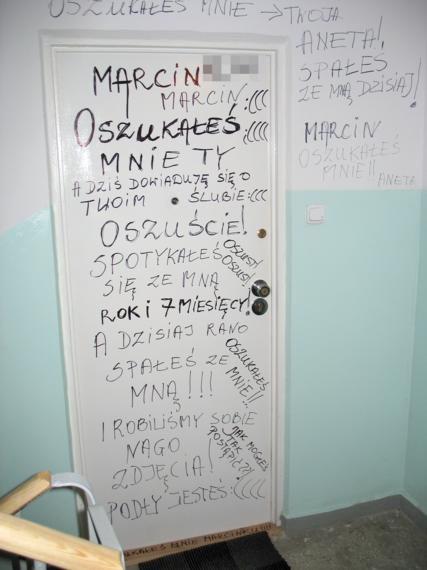 OSZUKAŁEŚ MNIE → TWOJA
ANETA!,
SPAŁEŚ
ZE MNĄ DZISIAJ!
MARCIN
OSZUKAŁEŚ
MNIE!!
ANETA
MARCIN
MARCIN:(((
OSZUKAŁEŚ:((((
MNIE TY
A DZIŚ DOWIADUJĘ SIĘ O
TWOIM ŚLUBIE:(((
OSZUŚCIE!
SPOTYKAŁEŚ
OSZUST!
OSZUST!
SIĘ ZE MNĄ
ROK i 7 MIESIĘCY!
A DZISIAJ RANO
SPAŁEŚ ZE
OSZUKAŁEŚ
MNIE!!
MNĄ!!!
I ROBILIŚMY SOBIE
NAGO
JAK MOGŁEŚ
TAK
POSTĄPIĆ?!
ZDJĘCIA!
PODŁY JESTEŚ:((((
MNIE